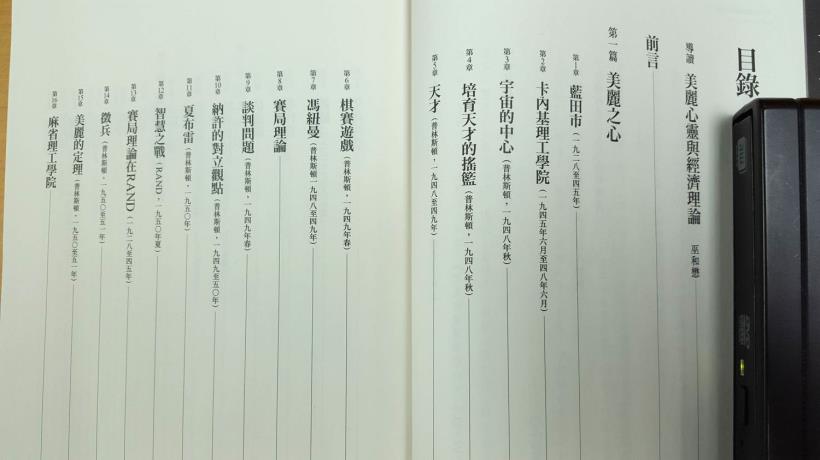 目錄
導讀 美麗心靈與經濟理論 巫和懋
前言
第一篇 美麗之心
第1章 藍田市（一九二八至四五年）
第2章 卡內基理工學院（一九四五年六月至四八年六月）
第3章 宇宙的中心（普林斯頓，一九四八年秋）
第4章 培育天才的搖籃（普林斯頓，一九四八年秋）
第5章 天才（普林斯頓，一九四八至四九年）
第6章 棋賽遊戲（普林斯頓，一九四九年春）
第7章 馮紐曼（普林斯頓一九四八至四九年）
第8章 賽局理論
第9章 談判問題（普林斯頓，一九四九年春）
第10章 納許的對立觀點（普林斯頓，一九四九至五〇年）
第11章 夏布雷（普林斯頓，一九五〇年）
第12章 智慧之戰（RAND，一九五〇年夏）
第13章 賽局理論在RAND（一九二八至四五年）
第14章 徵兵（普林斯頓，一九五〇至五一年）
第15章 美麗的定理（普林斯頓，一九五〇至五一年）
第16章 麻省理工學院